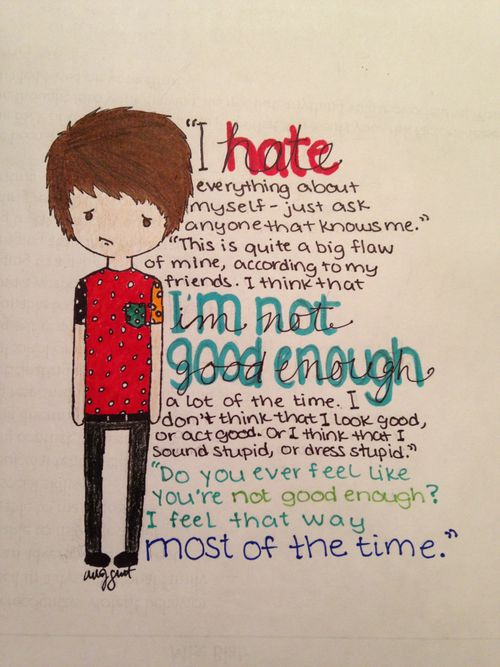 "I hate
everything about
myself - just ask
anyone that knows me."
"This is quite a big flaw
of mine, according to my
friends. I think that
I'm not
good enough
a lot of the time. I
don't think that I look good,
or act good. Or I think that I
sound stupid, or dress stupid."
"Do you ever feel like
you're not good enough?
I feel that way
most of the time."